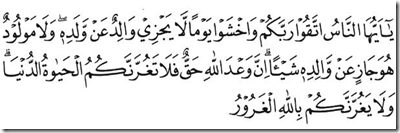 يَـٰٓأَيُّهَا النَّاسُ اتَّقُوا۟ رَبَّكُمْ وَاخْشَوْا۟ يَوْمًا لَّا يَجْزِي وَالِدٌ عَن وَلَدِهِۦ وَلَا مَوْلُودٌ
هُوَ جَازٍ عَن وَالِدِهِۦ شَيْـًٔا ۚ إِنَّ وَعْدَ اللَّهِ حَقٌّ ۖ فَلَا تَغُرَّنَّكُمُ الْحَيَوٰةُ الدُّنْيَا
وَلَا يَغُرَّنَّكُم بِاللَّهِ الْغَرُورُ